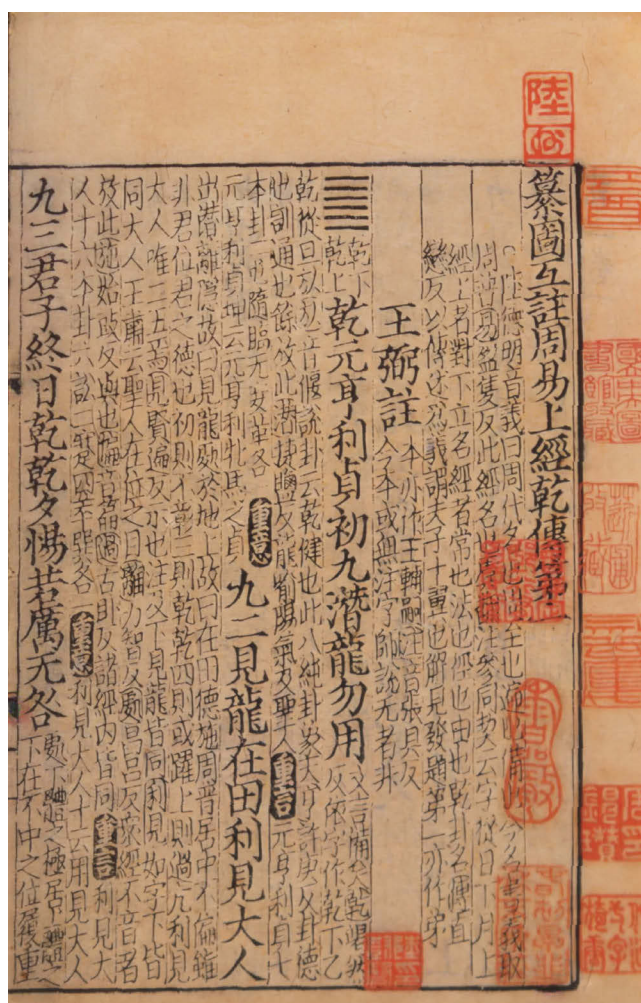 纂圖互註周易上經乾傳第一
陸德明音義曰周代名也周至也遍也備也今名書義取
周普易盈隻反此經名也虞翻注參同契云字從日下月上
經上者對下立名經者常也法也徑也由也乾卦名傳直
戀反以傳述爲義謂夫子十翼也解見發題第一亦作弟
王弼註
本亦作王輔嗣注音張具反
今本或無注字師說无者非
乾下
乾上
乾元亨利貞初九潛龍勿用
文言備矣乾竭然
反依字作乾下乙
乾從旦㫃㫃音偃說卦云乾健也此八純卦象天亨許庚反卦德
也訓通也餘放此潛捷鹽反龍喻陽氣及聖人重言元亨利貞七
本卦二屯隨臨无妄革各
元亨利貞坤云元亨利牝馬之貞
重意
九二見龍在田利見大人
出潛離隱故曰見龍處於地上故曰在田德施周普居中不偏雖
非君位君之德也初則不彰三則乾乾四則或躍上則過亢利見
大人唯二五焉見賢遍反示也注及下見龍皆同利見如字下皆
同大人王肅云聖人在位之目離力智反處昌呂反衆經不音者
放此施始豉反與也偏音篇過古臥反諸經內皆同重言利見大
人十六本卦六訟二蹇四萃巽各
重意利見大人十云用見大人
九三君子終日乾乾夕惕若厲无咎
處下體之極居上體之
下在不中之位履重